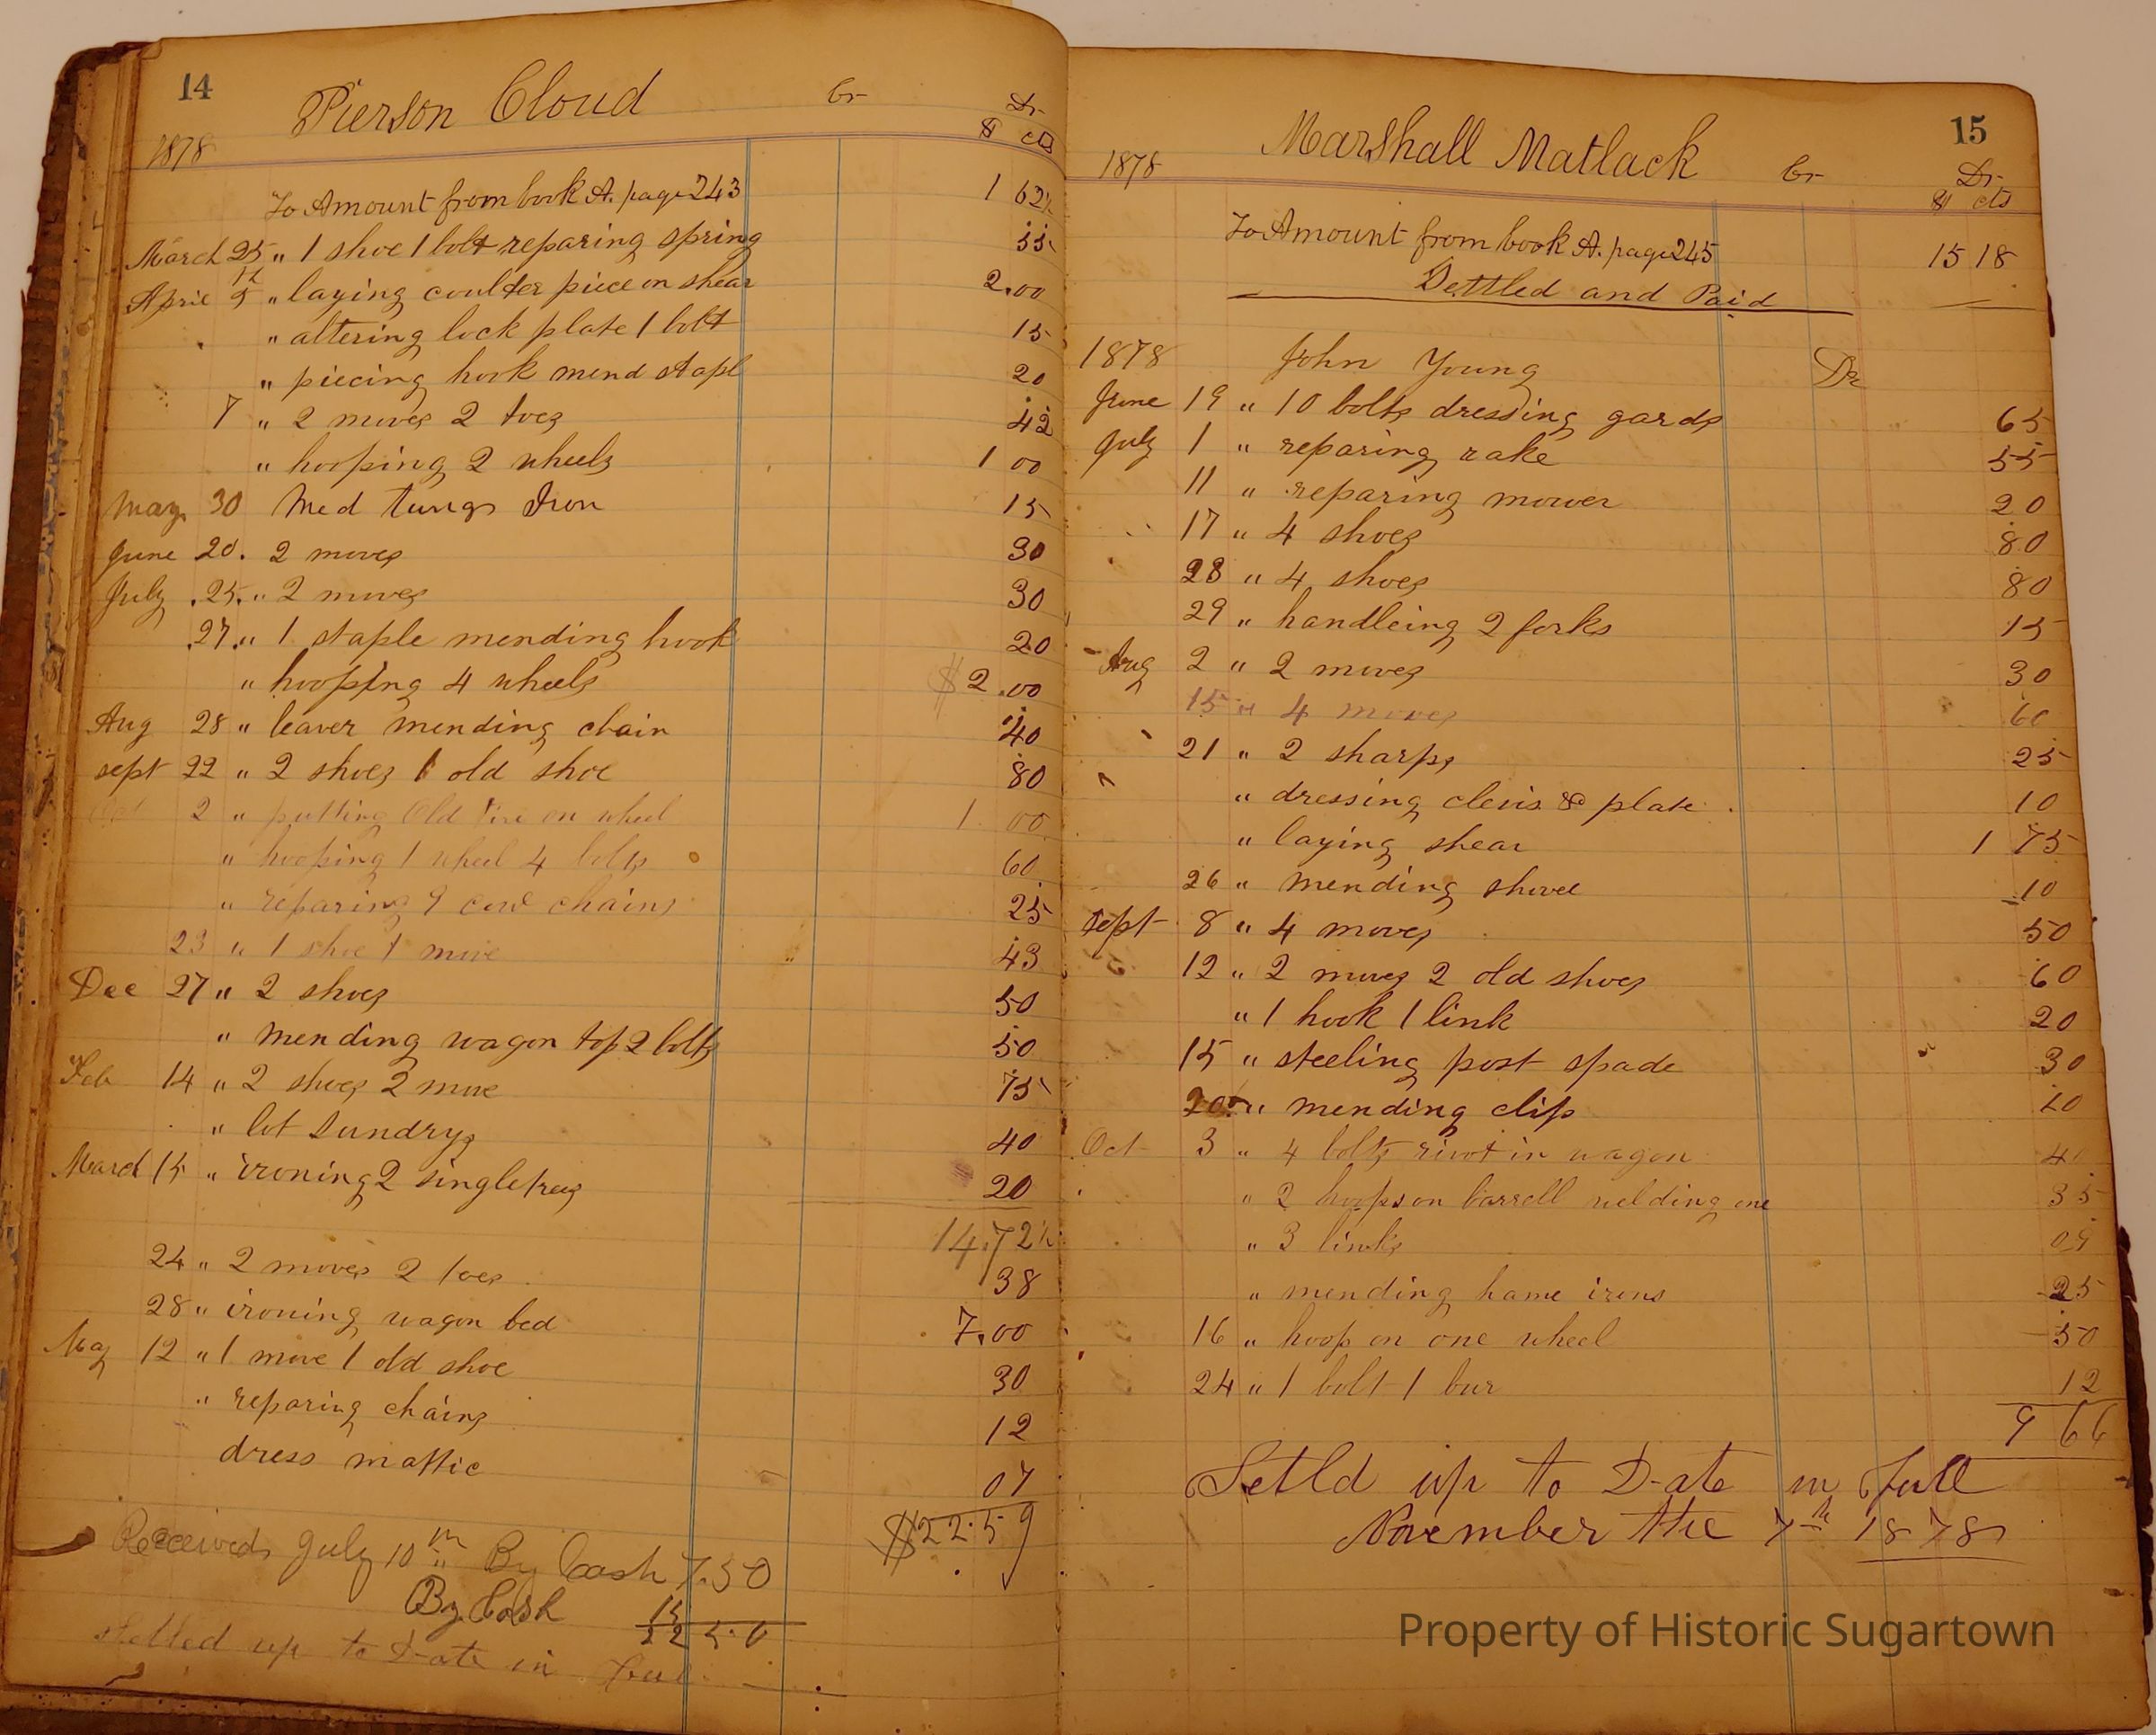 14
Pierson Cloud Cr Dr
1878 $ cts
To Amount from book A. page 243 1 62½
March 25 " 1 shoe 1 bolt reparing spring 55
April 5th " laying coulter piece on shear 2.00
" altering lock plate 1 bolt 15
" piecing hook mend stapl 20
7 " 2 moves 2 toes 42
" hooping 2 wheels 1 00
May 30 Med tungs Iron 15
June 20. 2 moves 30
July 25. " 2 moves 30
27. " 1 staple mending hook 20
" hooping 4 wheels $2.00
Aug 28 " leaver mending chain 40
sept 22 " 2 shoes 1 old shoe 80
Oct 2 " putting Old tire on wheel 1 00
" hooping 1 wheel 4 bolts 60
" reparing 9 cow chains 25
23 " 1 shoe 1 move 43
Dec 27 " 2 shoes 50
" mending wagon top 2 bolts 50
Feb 14 " 2 shoes 2 move 75
" lot Sundrys 40
March 15 " ironing 2 singletrees 20
14.72½
24 " 2 moves 2 toes 38
28 " ironing wagon bed 7.00
May 12 " 1 move 1 old shoe 30
" reparing chains 12
dress mattic 07
$22.59
Received July 10th By Cash 7.50
By Cash 15
22 5.0
settled up to Date in full
15
Marshall Matlack Cr Dr
1878 $ cts
To Amount from book A. page 245 15 18
Settled and Paid
1878 John Young Dr
June 19 " 10 bolts dressing gards 65
July 1 " reparing rake 55
11 " reparing mower 20
17 " 4 shoes 80
28 " 4 shoes 80
29 " handleing 2 forks 15
Aug 2 " 2 moves 30
15 " 4 moves 60
21 " 2 sharps 25
" dressing clevis & plate 10
" laying shear 1 75
26 " mending shovel 10
sept 8 " 4 moves 50
12 " 2 moves 2 old shoes 60
" 1 hook 1 link 20
15 " steeling post spade 30
20 " mending clip 10
Oct 3 " 4 bolts rivot in wagon 40
" 2 hoops on barrell welding one 35
" 3 links 09
" mending hame irons 25
16 " hoop on one wheel 50
24 " 1 bolt 1 bur 12
9 66
Setld up to Date in full
November the 7th 1878
Property of Historic Sugartown